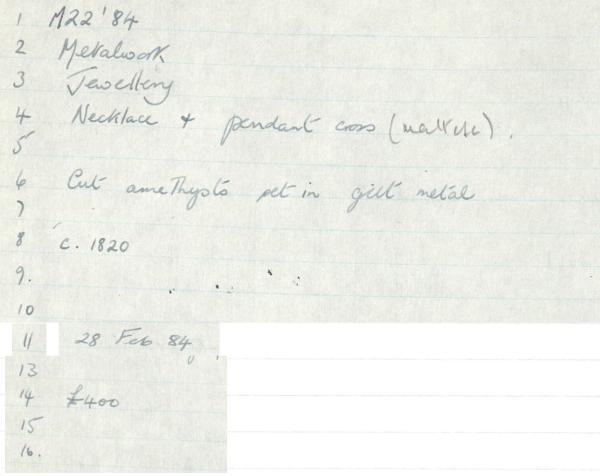 1 M22 '84
2 Metalwork
3 Jewellery
4 Necklace + pendant cross (maltese).
5
6 Cut amethysts set in gilt metal
7
8 c. 1820
9.
10
11 28 Feb 84
13
14 £400
15
16.